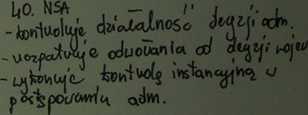 40. NSA
- kontroluje działalność decyzji adm.
- rozpatruje odwołania od decyzji wojew
- wykonuje kontrolę instancyjną w
postępowaniu adm.